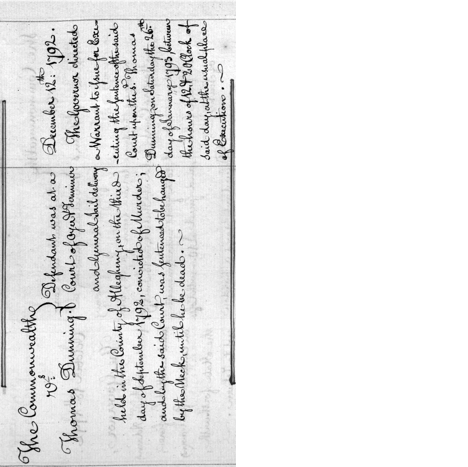 The Commonwealth
vs.
Thomas Dunning
Defendant was at a
Court of Oyer & Terminer
and General Jail delivery
held in the County of Allegheny, on the third
day of September 1792, convicted of Murder;
and by the said Court, was sentenced to be hanged
by the Neck, until he be dead.
December 12th: 1792.
The Governor directed
a Warrant to issue for Exe-
-cuting the sentence of the said
Court upon the sd. Thomas
Dunning, on Saturday the 26th:
day of January 1793, between
the hours of 12 & 2 OClock of
said day, at the usual place
of Execution.